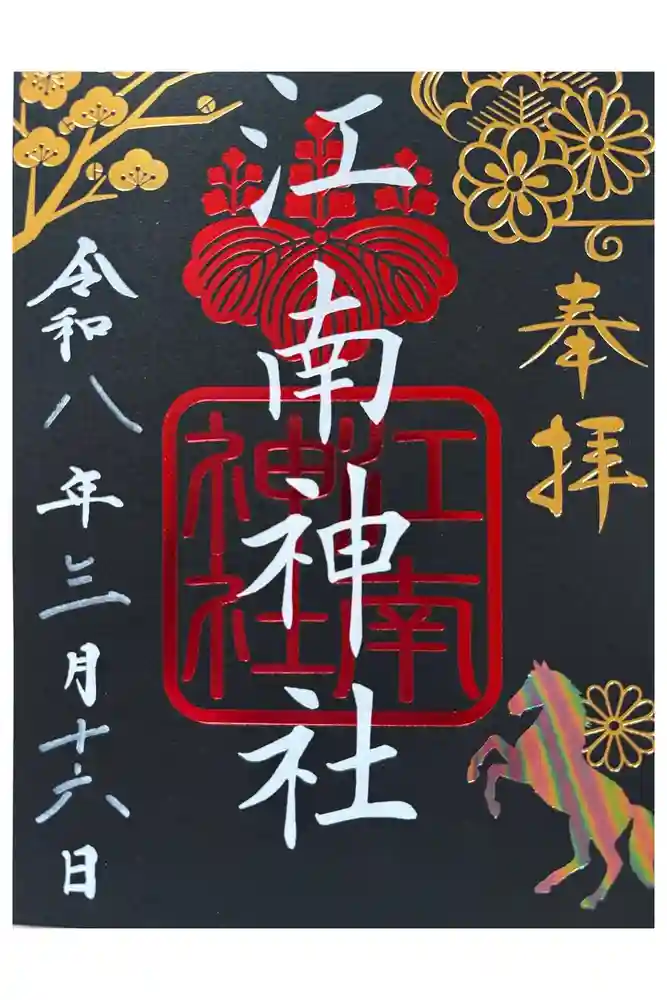 奉拝
江南神社
江南
神社
令和八年三月十六日